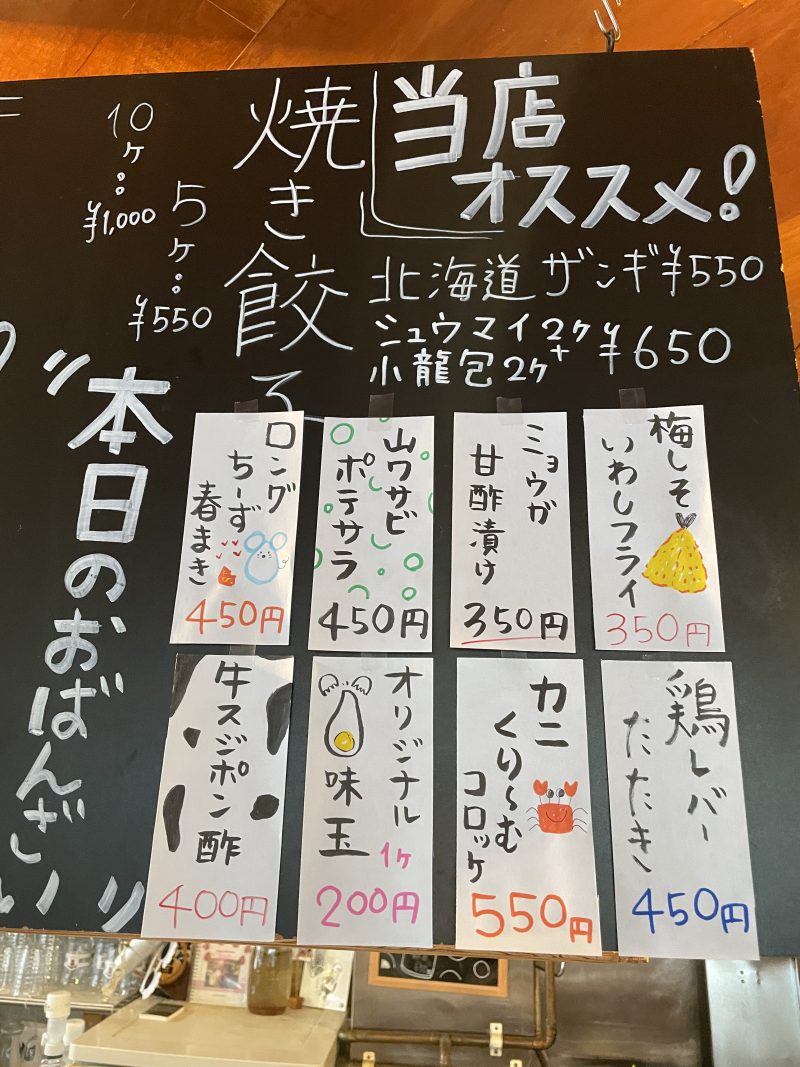 当店
オススメ!
北海道 ザンギ¥550
シュウマイ2ヶ+
小龍包2ヶ ¥650
焼き餃子
5ヶ:¥550
10ヶ:¥1,000
"本日のおばんざい"
梅しそ
いわしフライ
350円
ミョウガ
甘酢漬け
350円
山ワサビ
ポテサラ
450円
ロング
ちーず
春まき
450円
鶏レバー
たたき
450円
カニ
くり〜む
コロッケ
550円
オリジナル
味玉
1ヶ
200円
牛スジポン酢
400円